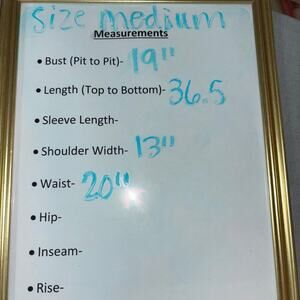 Size medium
Measurements
• Bust (Pit to Pit)- 19"
• Length (Top to Bottom)- 36.5
• Sleeve Length-
• Shoulder Width- 13"
• Waist- 20"
• Hip-
• Inseam-
• Rise-